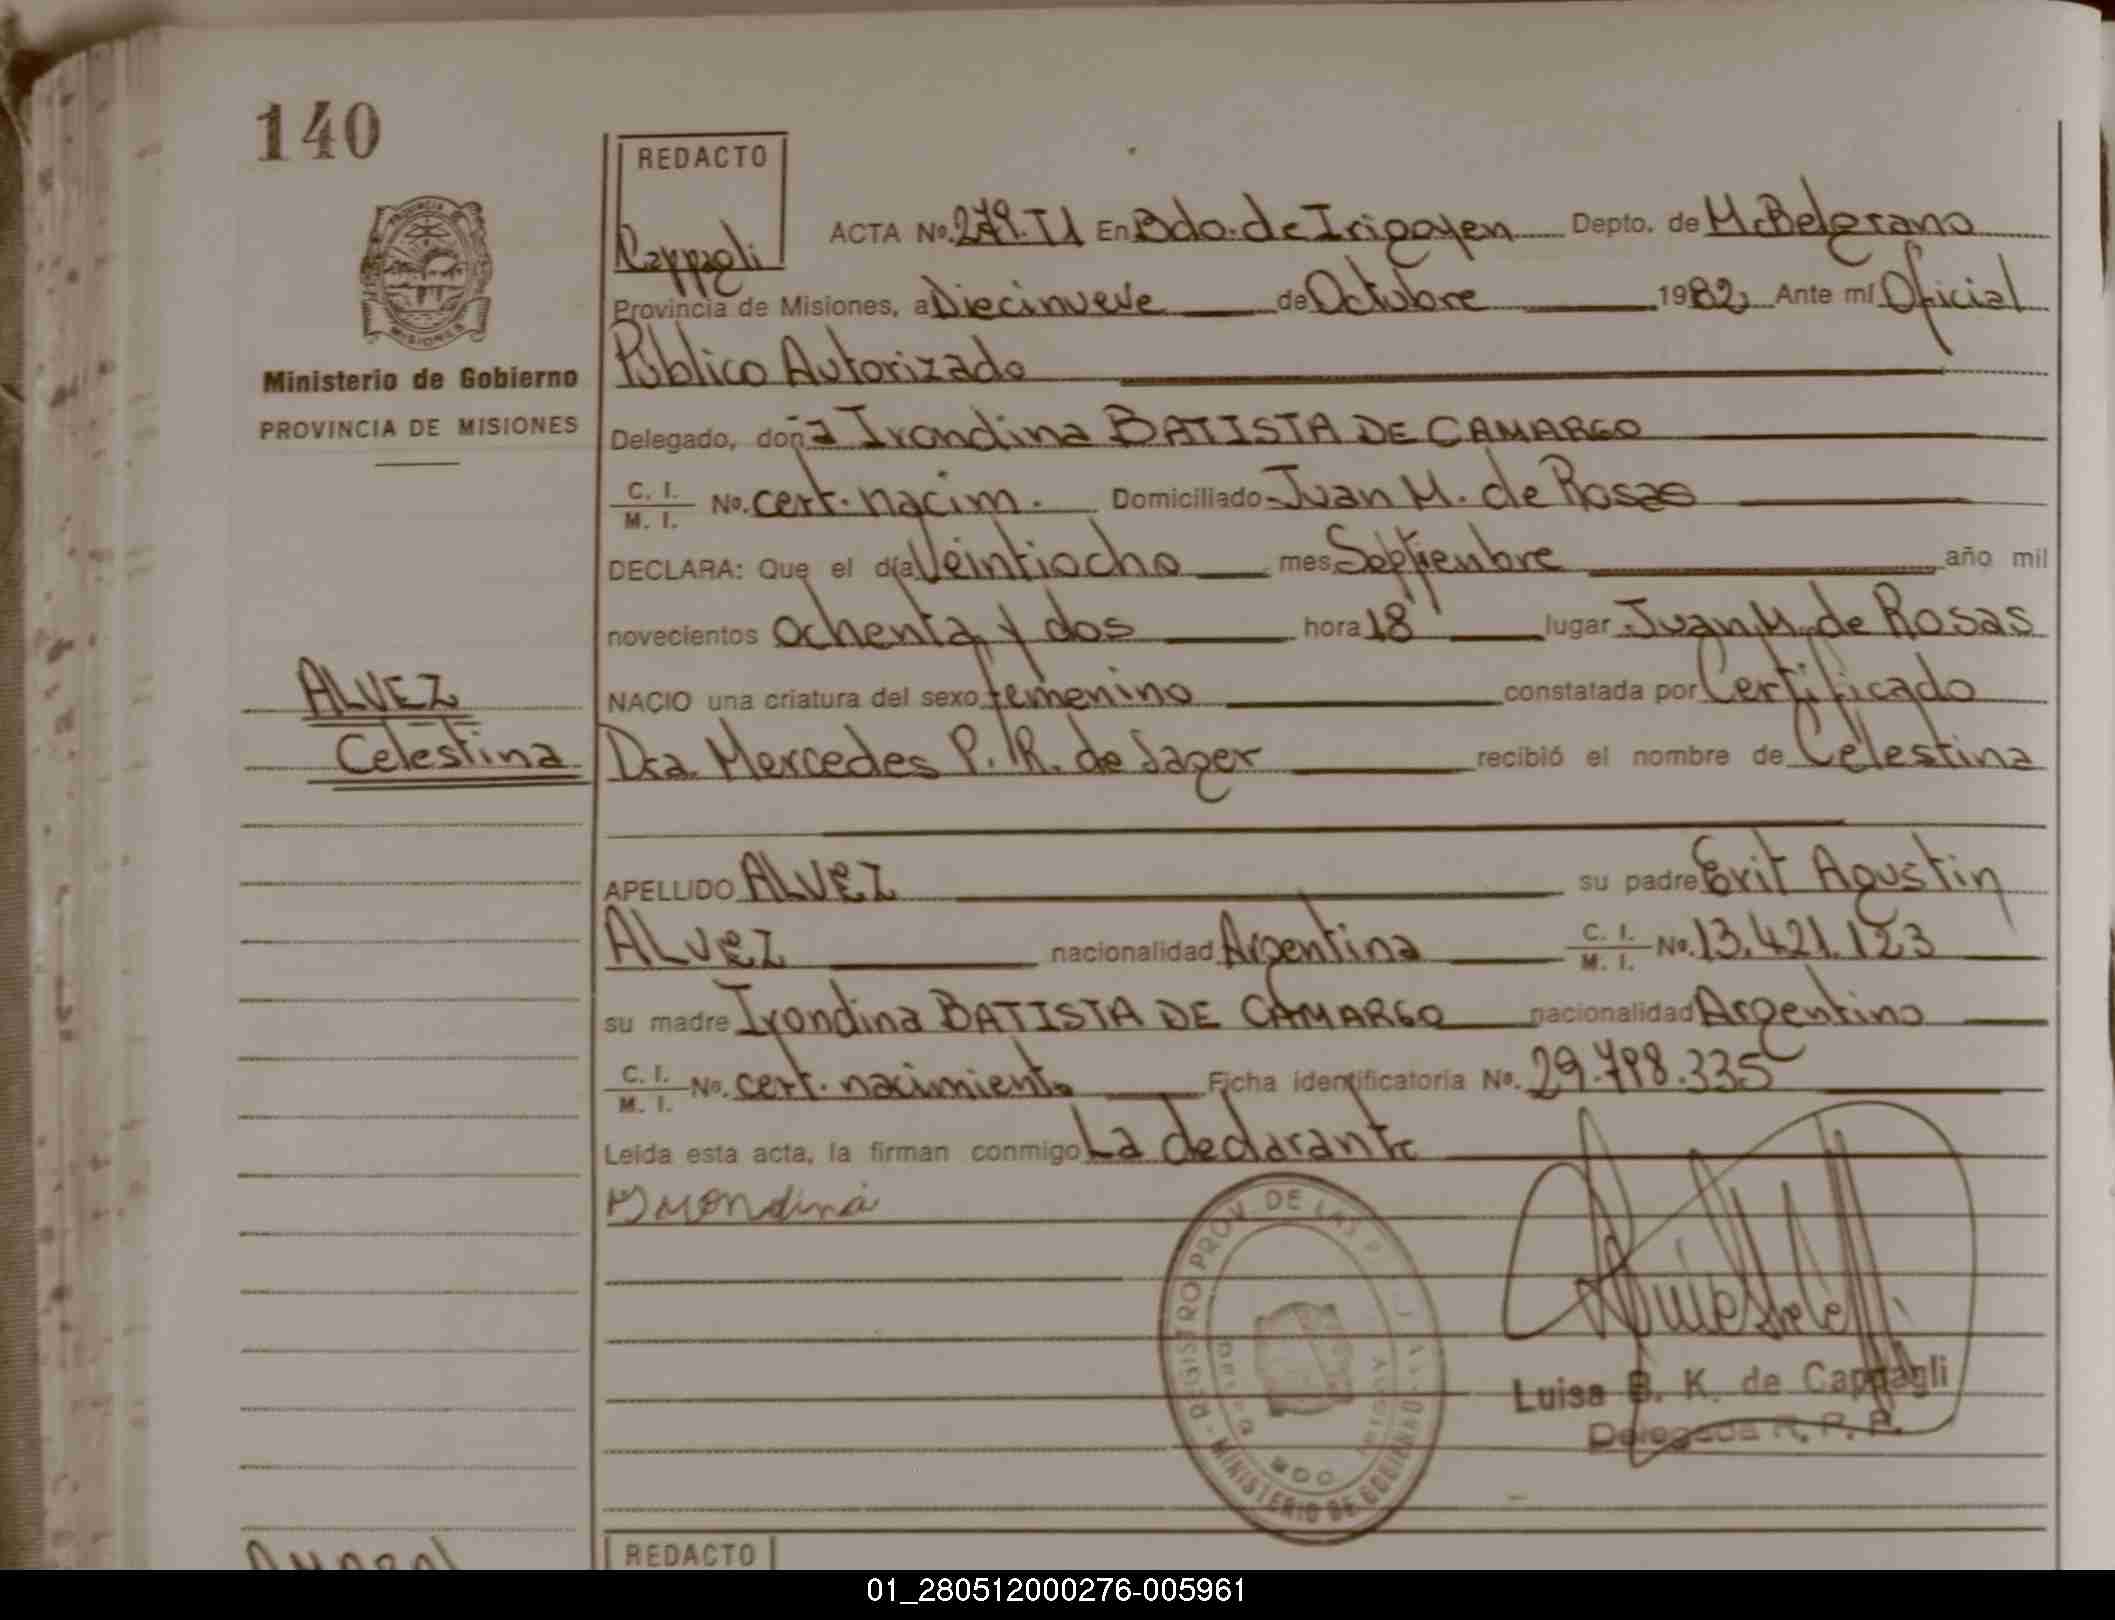 140
REDACTO
Cappagli
ACTA No. 279. TI En Bdo. de Irigoyen Depto. de M. Belgrano
Provincia de Misiones, a Diecinueve de Octubre 1982 Ante mí Oficial
Público Autorizado
Ministerio de Gobierno
PROVINCIA DE MISIONES
Delegado, doña Irondina BATISTA DE CAMARGO
C. I.
M. I. No. cert. nacim. Domiciliado Juan M. de Rosas
DECLARA: Que el día Veintiocho mes Septienbre año mil
novecientos ochenta y dos hora 18 lugar Juan M. de Rosas
ALVEZ
Celestina
NACIO una criatura del sexo femenino constatada por Certificado
Dra. Mercedes P. R. de Sager recibió el nombre de Celestina
APELLIDO ALVEZ su padre Erit Agustin
ALVEZ nacionalidad Argentina C. I. M. I. No. 13.421.123
su madre Irondina BATISTA DE CAMARGO nacionalidad Argentino
C. I.
M. I. No. cert. nacimiento Ficha identificatoria No. 29.798.335
Leída esta acta, la firman conmigo La declarante
REGISTRO PROV. DE LAS P
MINISTERIO DE GOBIERNO
Luisa B. K. de Cappagli
Delegada R. P. P.
REDACTO
01_280512000276-005961